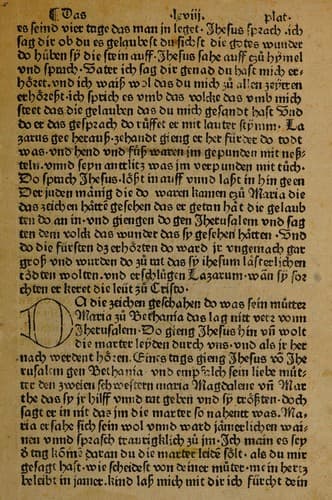 Das lxviij. plat.
es seind vier tage das man in leget. Jhesus sprach .ich
sag dir ob du es gelaubest du sichst die gotes wunder
do hüben sy die stein auff. Jhesus sahe auff zů hymel
vnd sprach. Vater ich sag dir genad du hast mich er-
höret. vnd ich waiß wol das du mich zů allen zeytten
erhörest. ich sprich es vmb das volcke das vmb mich
steet das die gelauben das du mich gesandt hast Vnd
do er das gesprach do růffet er mit lauter stymm. La
zarus gee herauß. zehandt gieng er her für der do todt
was. vnd hend vnd füß waren im gepunden mit neß-
teln. vnnd seyn antlitz was im verpunden mit tüch.
Do sprach Jhesus. lößt in auff vnnd laßt in hin geen
Der juden mänig die do waren kamen zů Maria die
das zeichen hätte gesehen das er getan hät die gelaub
ten do an in. vnd giengen do gen Jherusalem vnd sag
ten dem volck das wunder das sy gesehen hätten. Vnd
do die fürsten dz erhörten do ward jr vngemach gar
groß vnd wurden do zů rat das sy ihesum lästerlichen
tödten wolten. vnd erschlügen Lazarum. wañ sy for
chten er keret die leüt zů Cristo.
DA die zeichen geschahen do was sein můter
Maria zů Bethania das lag nitt verr vonn
Jherusalem. Do gieng Jhesus hin vñ wolt
die marter leyden durch vns. vnd als jr her
nach werdent hören. Eines tags gieng Jhesus võ Jhe
rusalem gen Bethania. vnd empfalch sein liebe můt-
ter den zweien schwestern maria Magdalene vñ Mar
the das sy jr hilff vnnd rat geben vnd sy trösten. doch
sagt er in nit das im die marter so nahent was. Ma
ria er sahe sich sein wol vnnd ward jämerlichen wai-
nen vnnd sprach traurigklich zů jm. Ich main es sey
d tag köme daran du die marter leidē sölt. als du mir
gesagt hast. wie scheidest von deiner můter. mein hertz
beleibt in jamer. kind laß mich mit dir ich fürcht dein